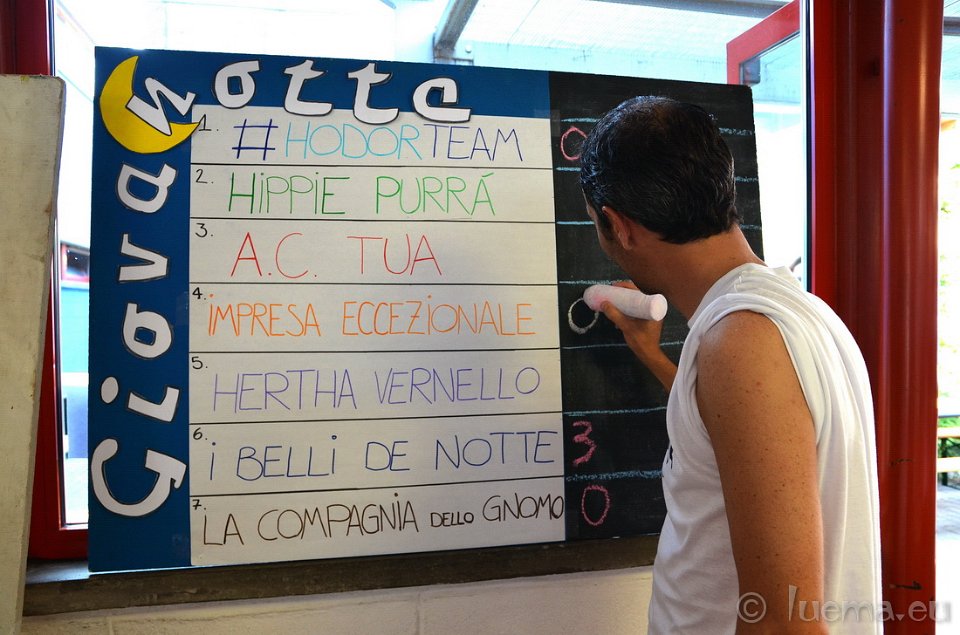 Giovanotte
1. #HODORTEAM 0
2. HiPPiE PURRÁ
3. A.C. TUA
4. iMPRESA ECCEZIONALE
5. HERTHA VERNELLO
6. i BELLi DE NOTTE 3
7. LA COMPAGNiA DELLO GNOMO 0
© luema.eu